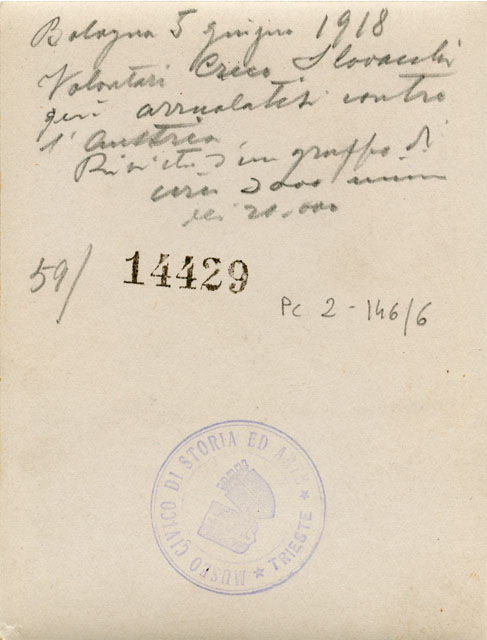 Bologna 5 giugno 1918
Volontari Czeco Slovacchi
già arruolatisi contro
l'Austria
Rivista d'un gruppo di
circa 3000 uomini
20.000
59/ 14429
Pc 2-146/6
MUSEO CIVICO DI STORIA ED ARTE ★ TRIESTE ★